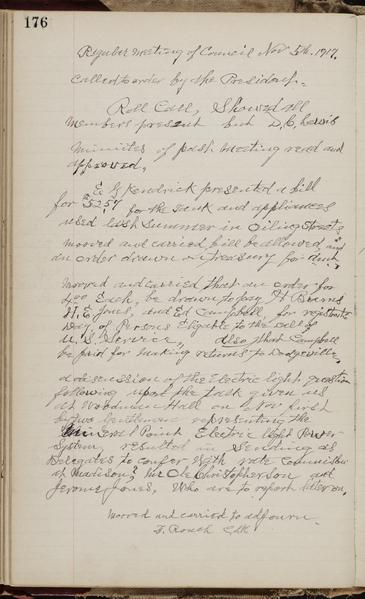 176
Reguler meeting of Council Nov 5th, 1917.
Called to order by the President.
Roll Call, Showed all
members present but D. C. Lewis
Minutes of past meeting read and
approved,
E G Kendrick presented a bill
for $52.57 for the tank and appliances
used last summer in oiling streets
moved and carried, bill be allowed and
an order drawn on treasury for amt,
Moved and carried that an order for
each, be drawn to pay
Jones, and Ed Campbell, for registration
Day, of Persons Eligable to the call of
U. S. Service, also, that Campbell
be paid for making returns to Dodgeville,
a discussion of the Electric light question
following upon the talk given us
at Woodmen Hall on Nov first
by two Gentlemen representing the
Mineral Point Electric light Power
System, resulted in sending as
Delegates to confer with State Commission
at Madison, Christopherson and
Jerome Jones, Who are to report later on,
moved and carried to adjourn
Clk